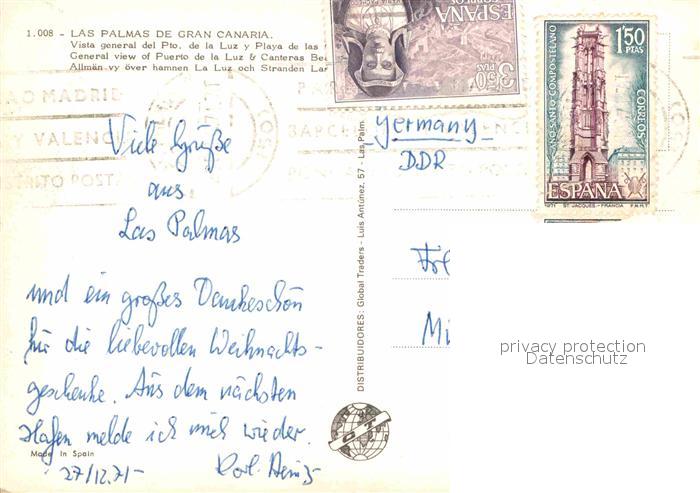 1.008 - LAS PALMAS DE GRAN CANARIA.
Vista general del Pto. de la Luz y Playa de las
General view of Puerto de la Luz & Canteras Bea
Allmän vy över hamnen La Luz och Stranden Las
ESPAÑA
CORREOS
3'50 PTAS
1'50
PTAS
AÑO SANTO COMPOSTELANO
CORREOS
ESPAÑA
1971 ST JACQUES - FRANCIA F.N.M.T.
MADRID
VALENC
DISTRITO POST.
BARCEL
Viele Grüße
aus
Las Palmas
und ein großes Dankeschön
für die liebevollen Weihnachts-
geschenke. Aus dem nächsten
Hafen melde ich mich wieder.
27/12.71-
Karl-Heinz
Made in Spain
DISTRIBUIDORES: Global Traders - Luis Antúnez, 57 - Las Palm.
Germany
DDR
Mi
privacy protection
Datenschutz